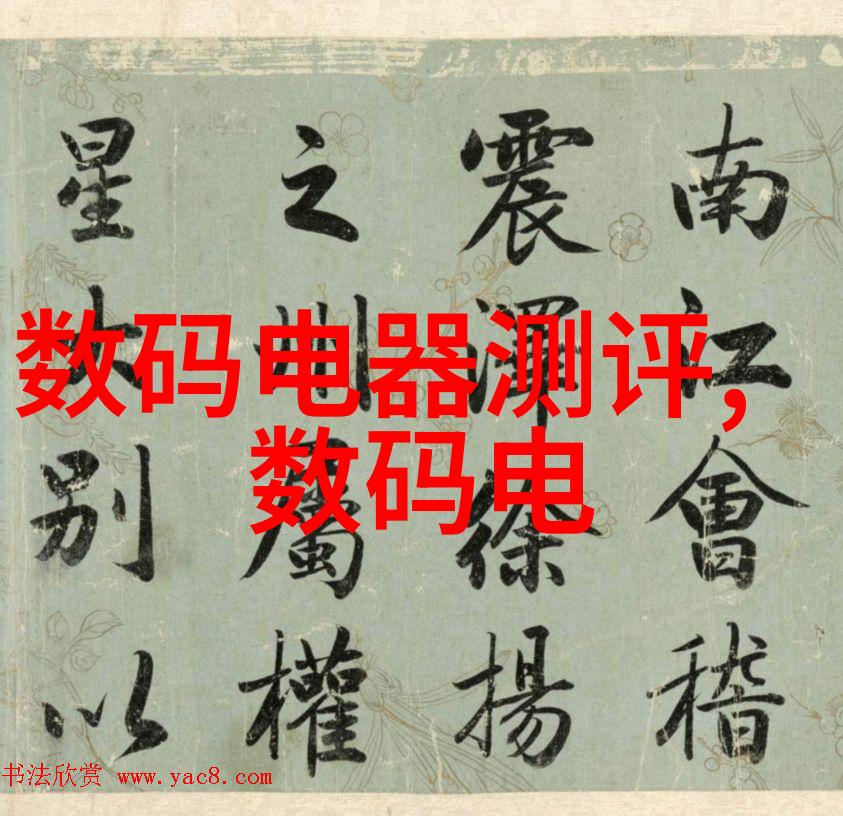 南江會稽
震澤徐揚
之州屬權
星大別以
数码电器测评,
数码电
书法欣赏 www.yac8.com